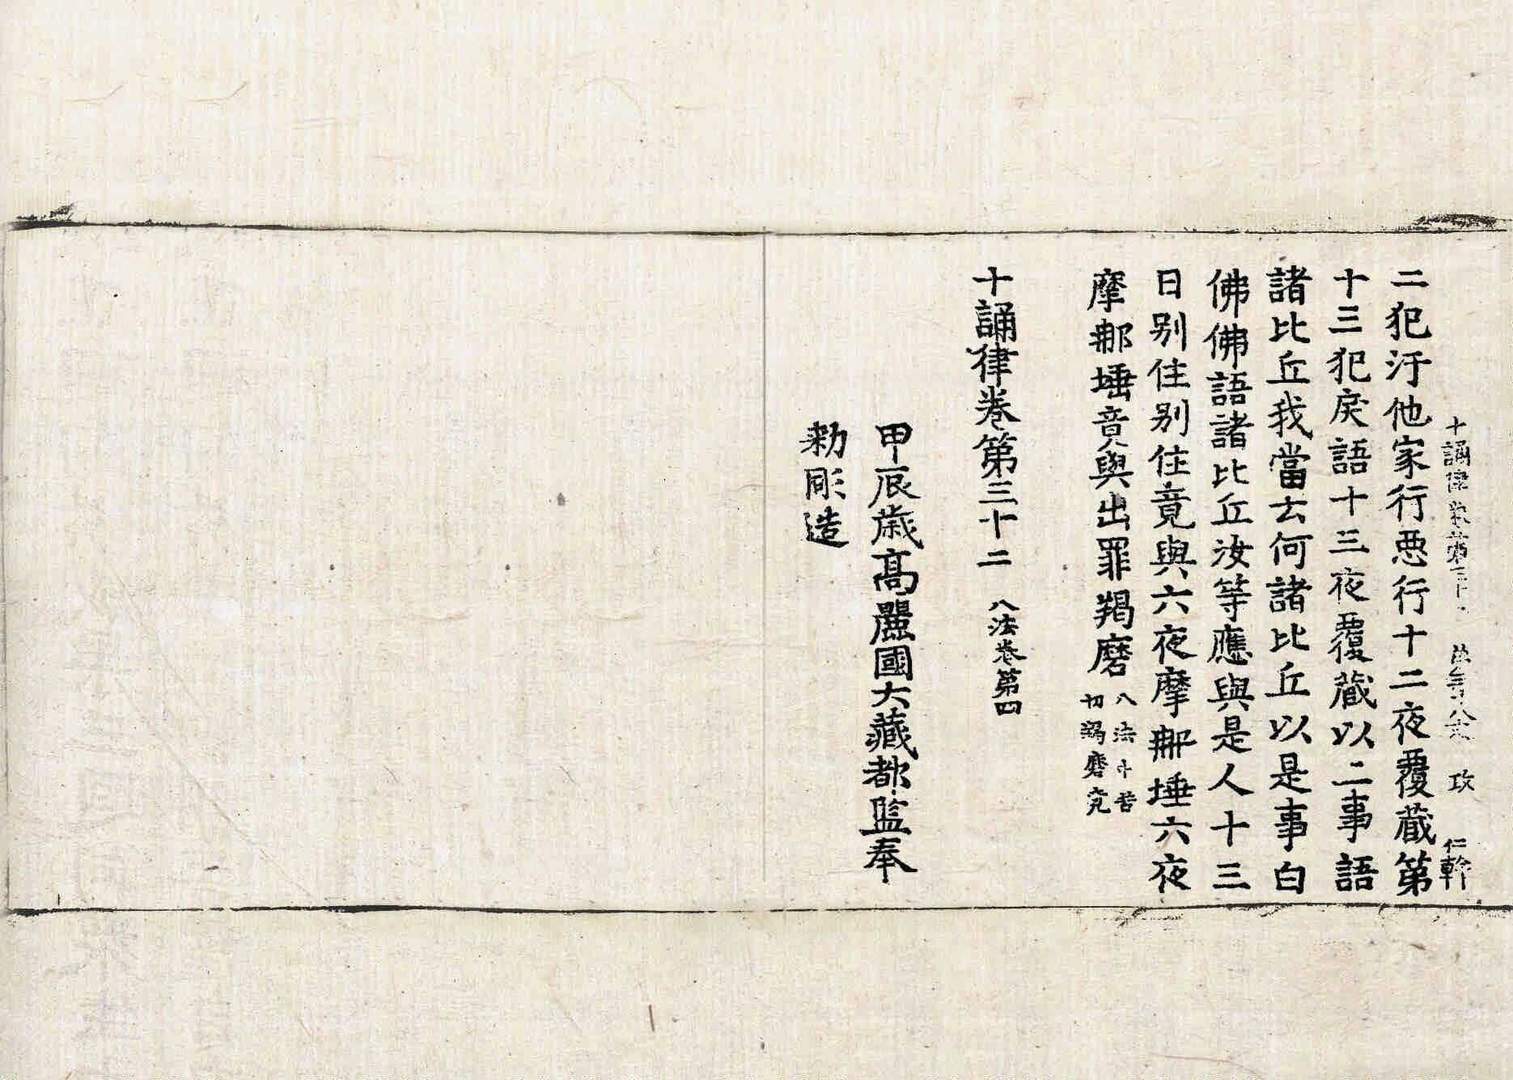 十誦律 第三十 攻 仁幹
二犯汙他家行惡行十二夜覆藏第
十三犯戾語十三夜覆藏以二事語
諸比丘我當云何諸比丘以是事白
佛佛語諸比丘汝等應與是人十三
日别住别住竟與六夜摩那埵六夜
摩那埵竟與出罪羯磨
八法中苦
切羯磨竟
十誦律卷第三十二 八法卷第四
甲辰歲高麗國大藏都監奉
勑彫造